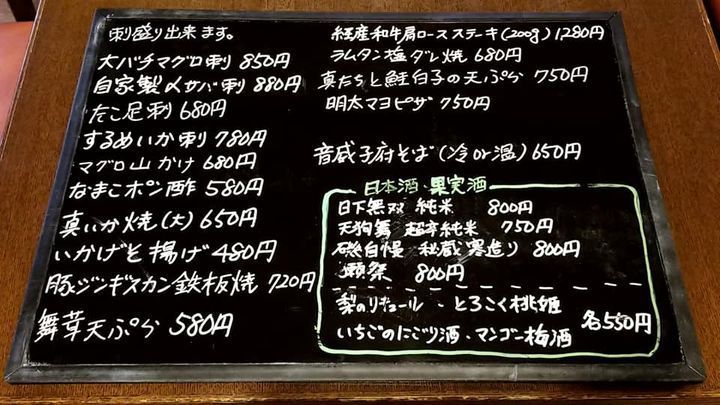 刺盛り出来ます。
大バチマグロ刺 850円
自家製〆サバ刺 880円
たこ足刺 680円
するめいか刺 780円
マグロ山かけ 680円
なまこポン酢 580円
真いか焼(大) 650円
いかげそ揚げ 480円
豚ジンギスカン鉄板焼 720円
舞茸天ぷら 580円
経産和牛肩ロースステーキ(200g) 1,280円
ラムタン塩ダレ焼 680円
真たちと鮭白子の天ぷら 750円
明太マヨピザ 750円
音威子府そば(冷or温) 650円
日本酒・果実酒
日下無双 純米 800円
天狗舞 超辛純米 750円
磯自慢 秘蔵寒造り 800円
獺祭 800円
梨のリキュール・とろこく桃姫
いちごのにごり酒・マンゴー梅酒
各550円